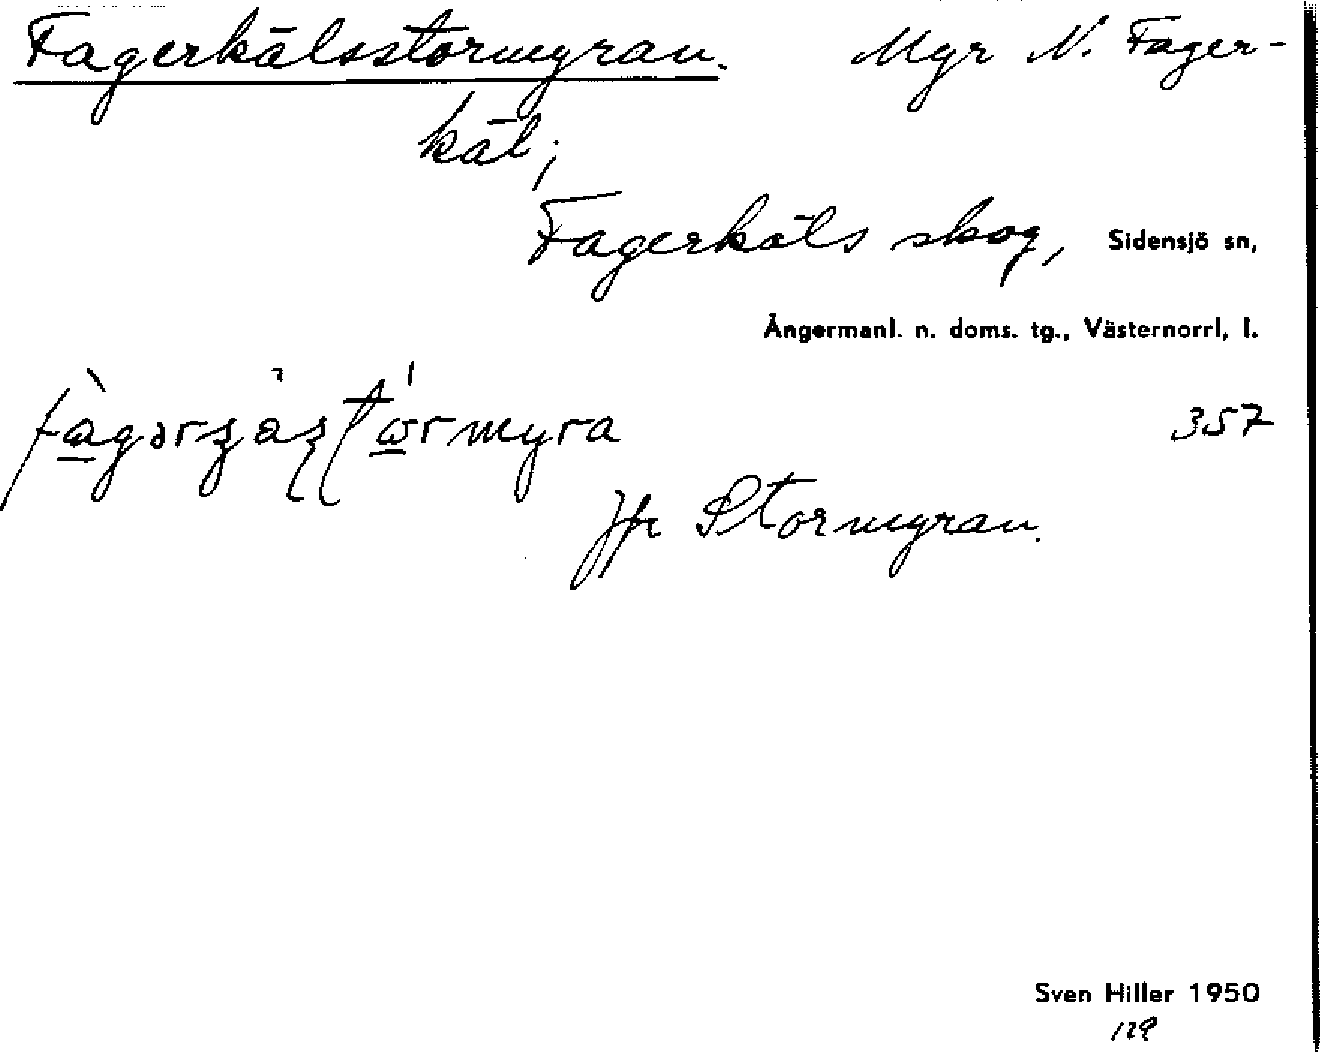 Fagerkälsstormyran. Myr N. Fager-
käl;
Fagerkäls skog, Sidensjö sn,
Ångermanl. n. doms. tg., Västernorrl, l.
357
Jfr Stormyran.
Sven Hiller 1950
129